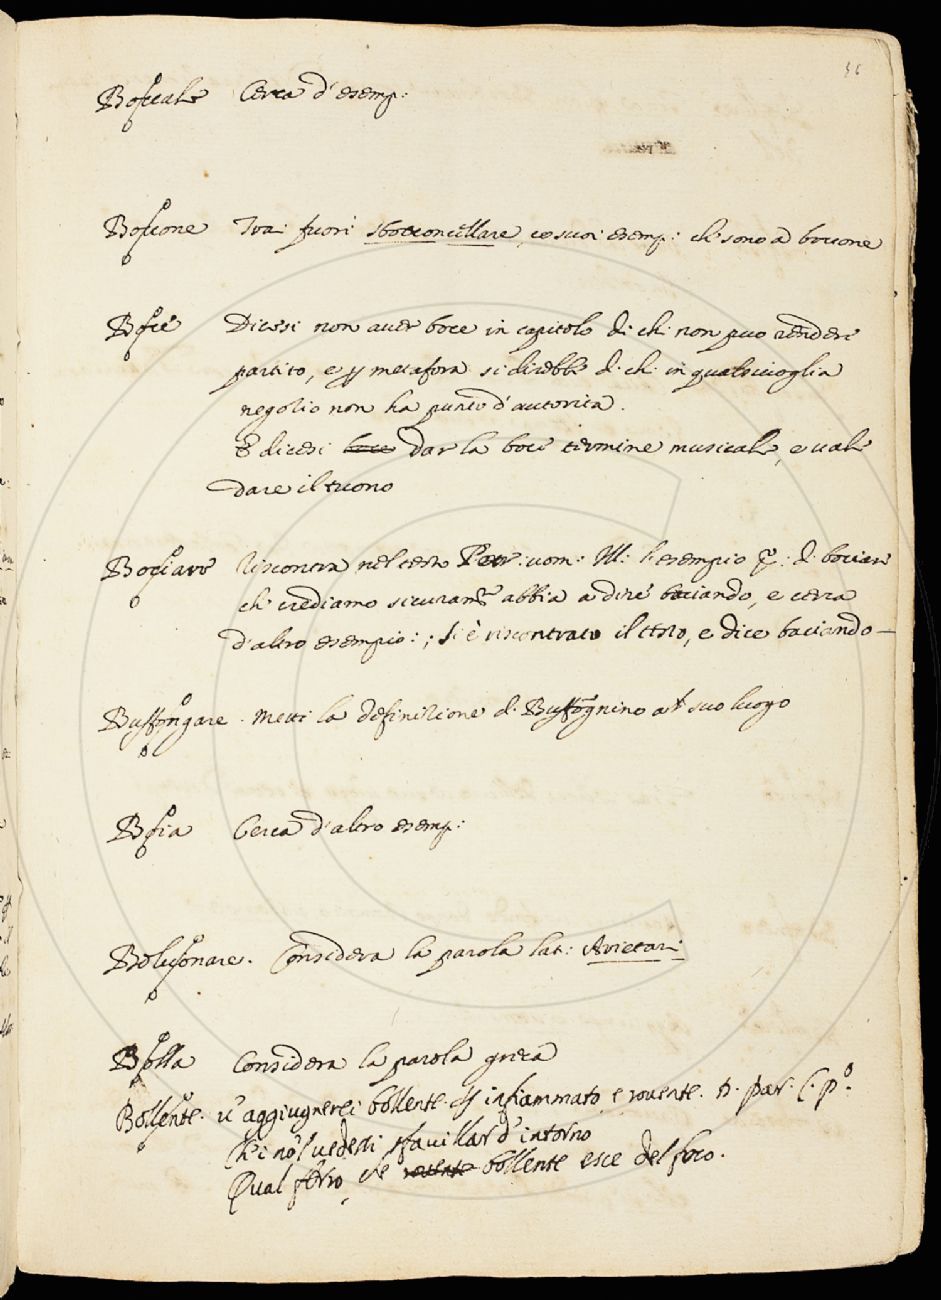 36
Boccale Cerca d'esemp:
Boccone Trai fuori sbocconcellare, co suoi esemp: ch' sono a boccone
Boce Dicesi non aver boce in capitolo di chi non può rendere
partito, e p metafora si direbbe d. ch. in qualsivoglia
negozio non ha punto d'autorità.
E dicesi boce dar la boce termine musicale, e vale
dare il tuono
Bociare Riscontra nel testo Petr: uom: Ill: l'esempio p: d. bociare
ch' crediamo sicuram.te abbia a dire baciando, e cerca
d'altro esempio: ; Si è riscontrato il testo, e dice baciando —
Buffongare. metti la definizione d. Buffognino al suo luogo
Boia Cerca d'altro esemp:
Bolcionare. Considera la parola lat: Arietar:
Bolla Considera la parola greca
Bollente. v' aggiugnerei bollente. p infiammato, e rovente. D. Par. C. p.o
Ch'i nol vedessi sfavillar d'intorno
Qual ferro, che rovente bollente esce del foco.